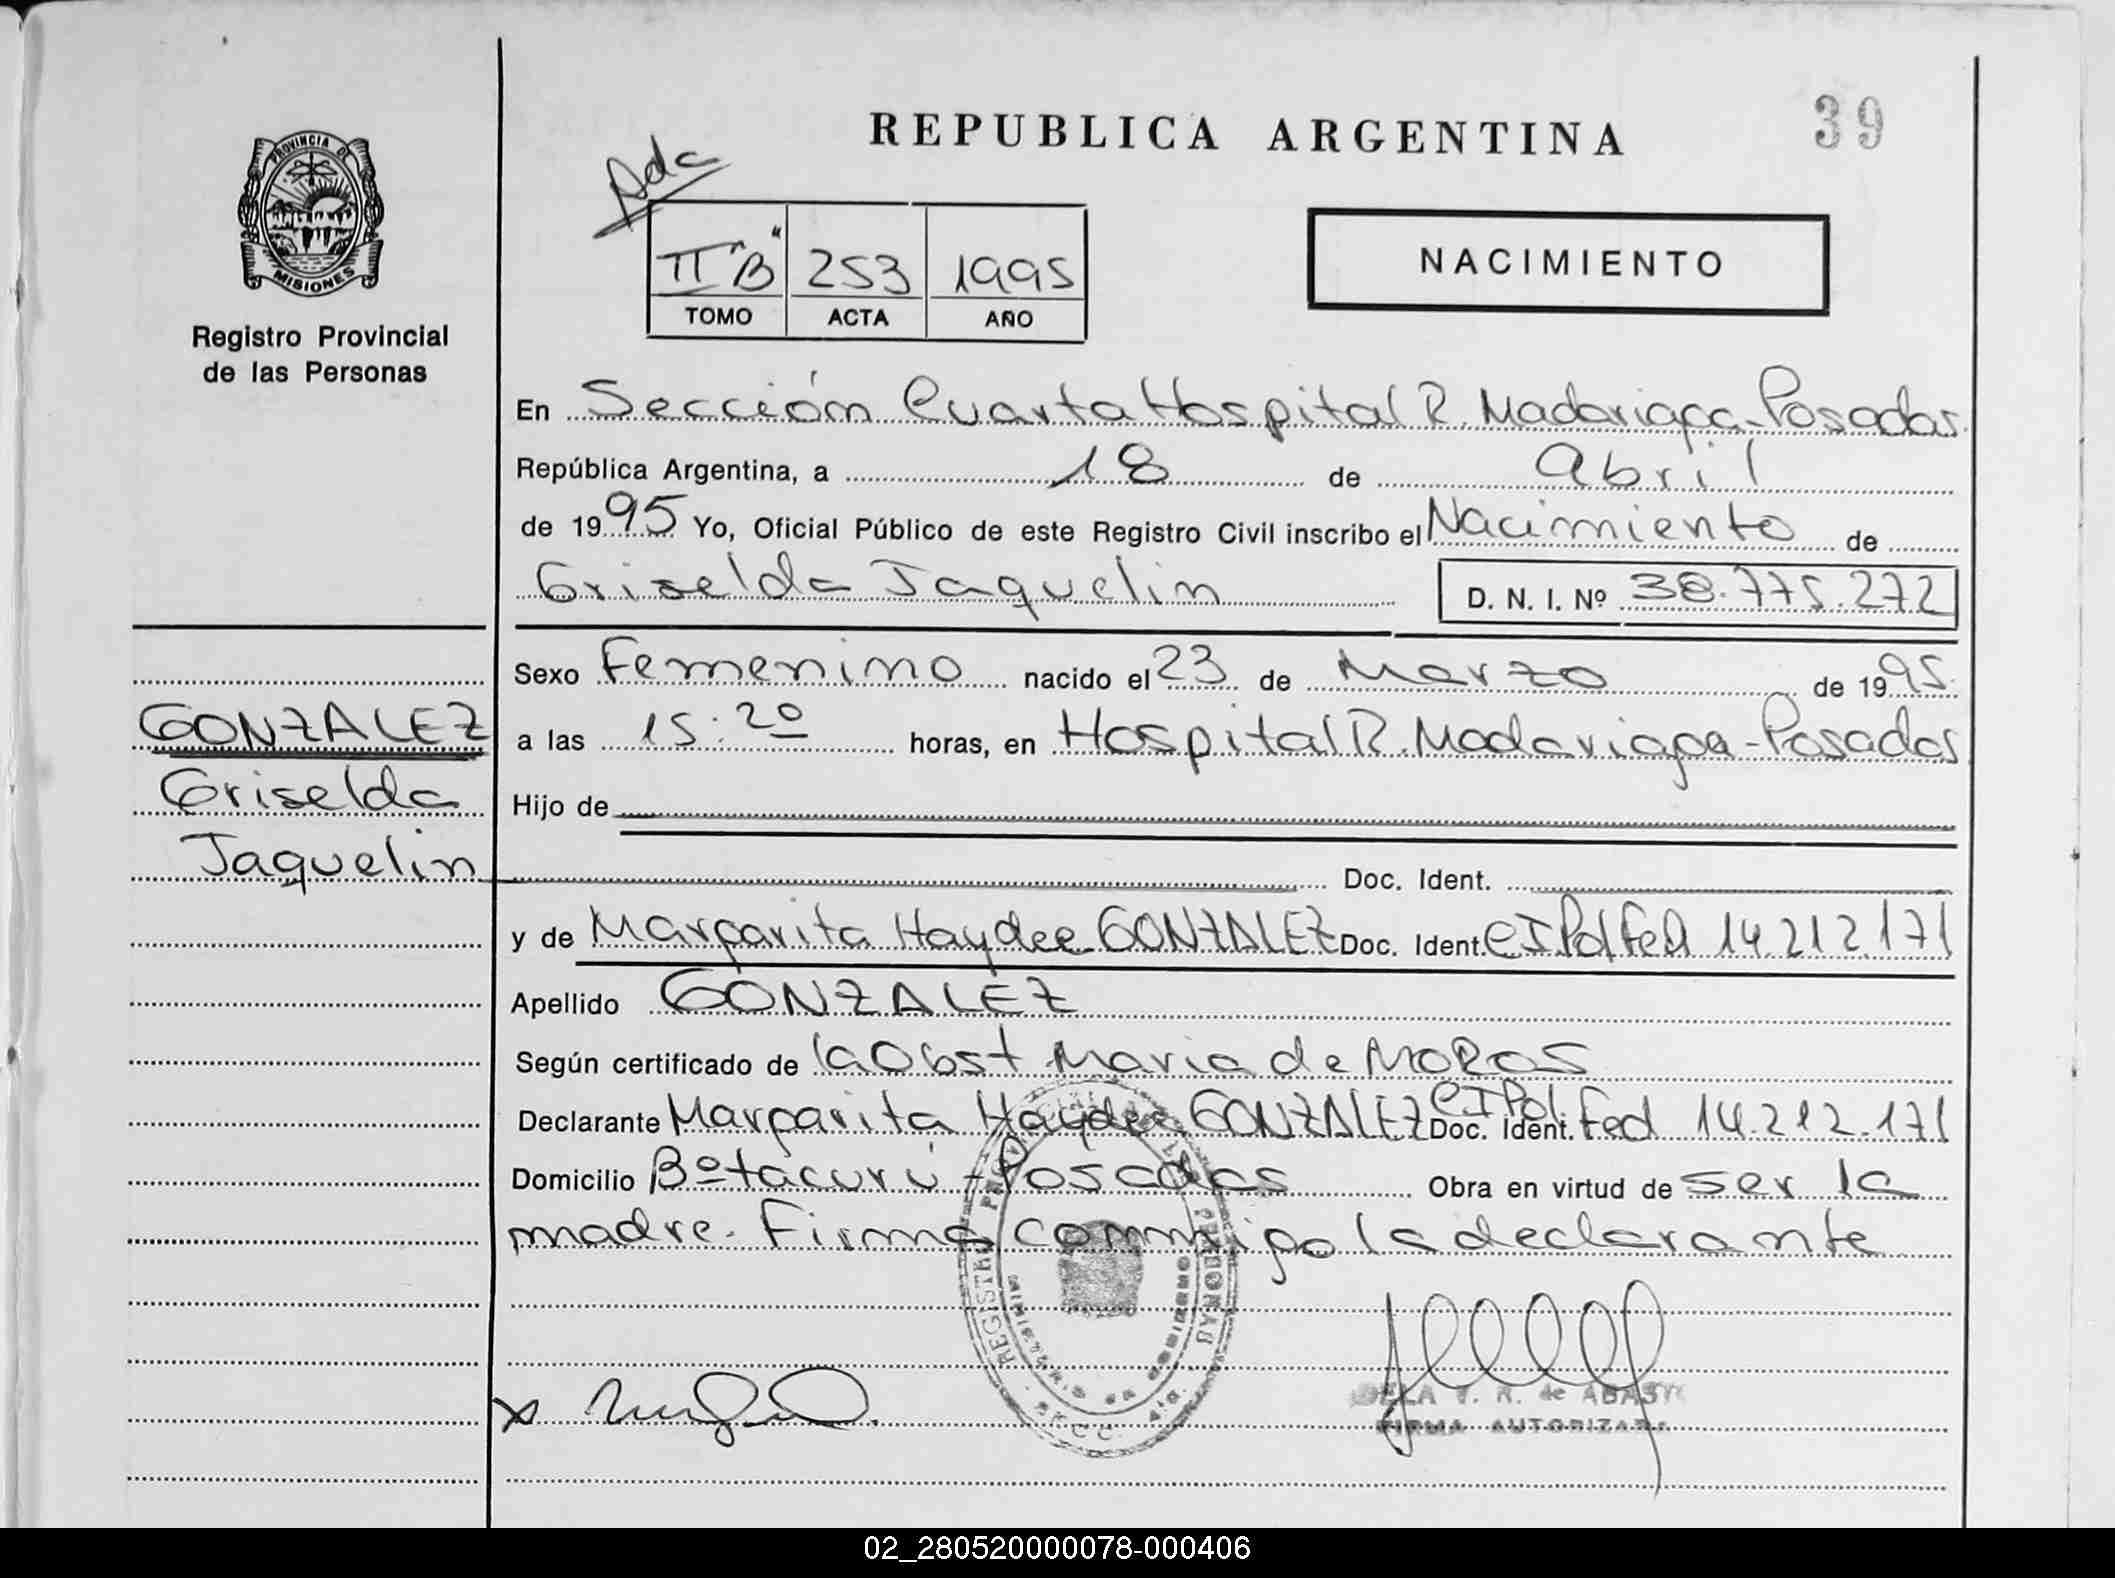 REPUBLICA ARGENTINA
39
Ada
PROVINCIA DE
MISIONES
Registro Provincial
de las Personas
II "B" 253 1995
TOMO ACTA AÑO
NACIMIENTO
En Sección Cuarta Hospital R. Madariaga - Posadas.
República Argentina, a 18 de Abril
de 1995 Yo, Oficial Público de este Registro Civil inscribo el Nacimiento de
Griselda Jaquelin D. N. I. Nº 38.775.272
Sexo Femenino nacido el 23 de Marzo de 1995.
a las 15:20 horas, en Hospital R. Madariaga - Posadas
Hijo de
Doc. Ident.
y de Margarita Haydee GONZALEZ Doc. Ident. CI Pol Fed 14.212.171
Apellido GONZALEZ
Según certificado de la Obst Maria de MOROS
Declarante Margarita Haydee GONZALEZ Doc. Ident. CI Pol. Fed 14.212.171
Domicilio Bº tacurú - Posadas Obra en virtud de ser la
madre. Firma conmigo la declarante
GONZALEZ
Griselda
Jaquelin
MINISTERIO DE GOBIERNO
de ABASTO
FIRMA AUTORIZADA
02_280520000078-000406